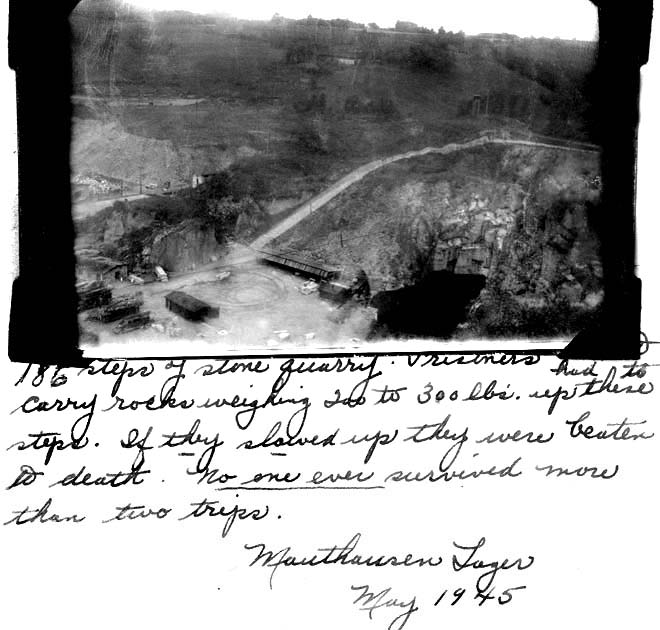 186 steps of stone quarry. Prisoners had to
carry rocks weighing 200 to 300 lbs. up these
steps. If they slowed up they were beaten
to death. No one ever survived more
than two trips.
Mauthausen Lager
May 1945